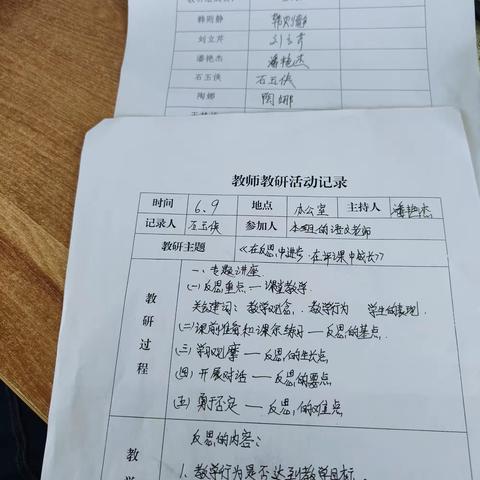 韩则静 韩则静
刘立芹 刘立芹
潘艳杰 潘艳杰
石玉侠 石玉侠
陶娜 陶娜
教师教研活动记录
时间 6.9 地点 办公室 主持人 潘艳杰
记录人 石玉侠 参加人 本组的语文老师
教研主题 《在反思中进步 在评课中成长》
教研过程
一、专题讲座
(一)反思重点——课堂教学
关键词:教学观念、教学行为 学生的表现
(二)课前准备和课尔练习——反思的基点
(三)学习观摩——反思的生长点
(四)开展对话——反思的要点
(五)勇于否定——反思的难点
教学
反思的内容:
1、教学行为是否达到教学目标